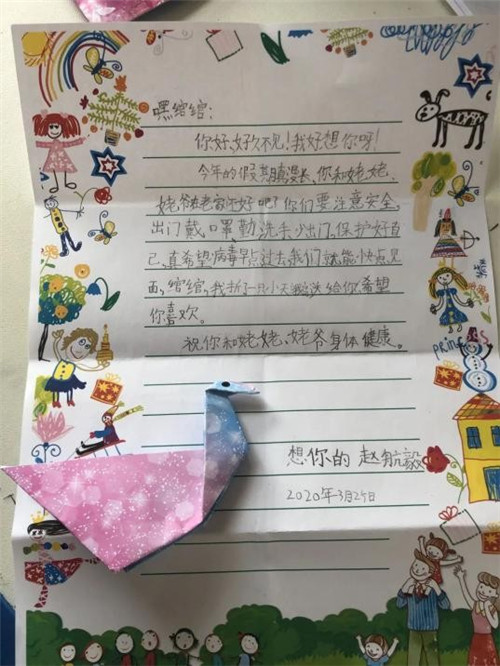 嘿绾绾：
你好,好久不见!我好想你呀!
今年的假期真漫长、你和姥姥、
姥爷在老家还好吧？你们要注意安全,
出门戴口罩、勤洗手少出门,保护好自
己,真希望病毒早点过去,我们就能快点见
面,绾绾,我折了一只小天鹅送给你希望
你喜欢。
祝你和姥姥、姥爷身体健康。
想你的 赵航毅
2020年3月24日